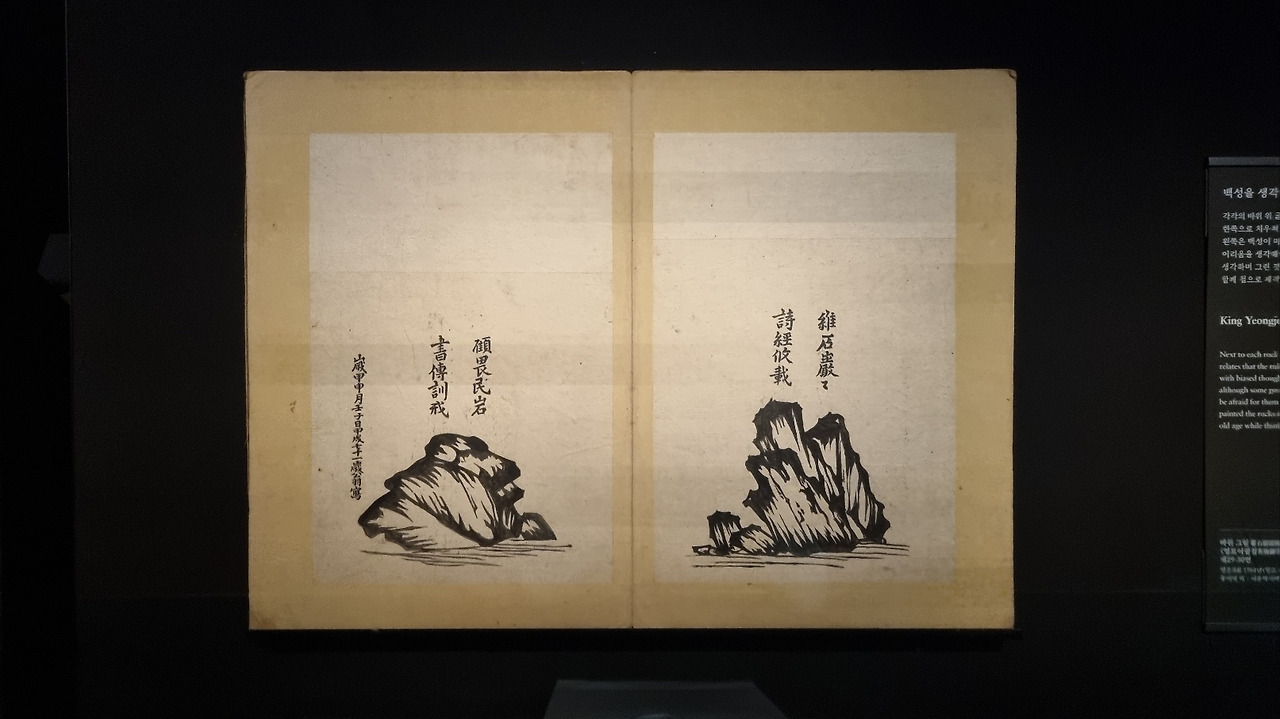 維石巖〻
詩經攸載
顧畏民岩
書傳訓戒
歲甲申月壬子日甲戌七十一歲翁寫
백성을 생각
각각의 바위 위
한쪽으로 치우쳐
왼쪽은 백성이
어려움을 생각해
생각하며 그린
함께 첩으로 제작
King Yeongj
Next to each rock
relates that the
with biased
although some
be afraid for them
painted the rocks
old age while
바위 그림
제29-30면